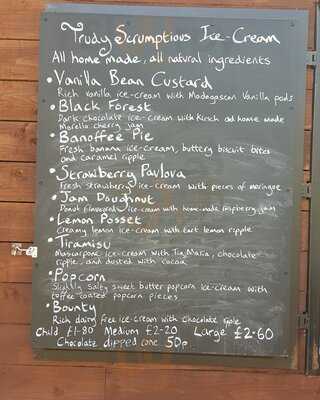 Trudy Scrumptious Ice-Cream
All home made, all natural ingredients
• Vanilla Bean Custard
Rich vanilla ice-cream with Madagascan Vanilla pods
• Black Forest
Dark chocolate ice-cream with Kirsch and home made
Morello cherry jam
• Banoffee Pie
Fresh banana ice-cream, buttery biscuit bites
and caramel ripple
• Strawberry Pavlova
Fresh strawberry ice-cream with pieces of meringue
• Jam Doughnut
Donut flavoured ice-cream with home-made raspberry jam
• Lemon Posset
Creamy lemon ice-cream with tart lemon ripple
• Tiramisu
Mascarpone ice-cream with Tia Maria, chocolate
ripple and dusted with cocoa
• Popcorn
Slightly salty sweet butter popcorn ice-cream with
toffee coated popcorn pieces
• Bounty
Rich dairy free ice-cream with chocolate ripple
Child £1-80 Medium £2-20 Large £2-60
Chocolate dipped cone 50p